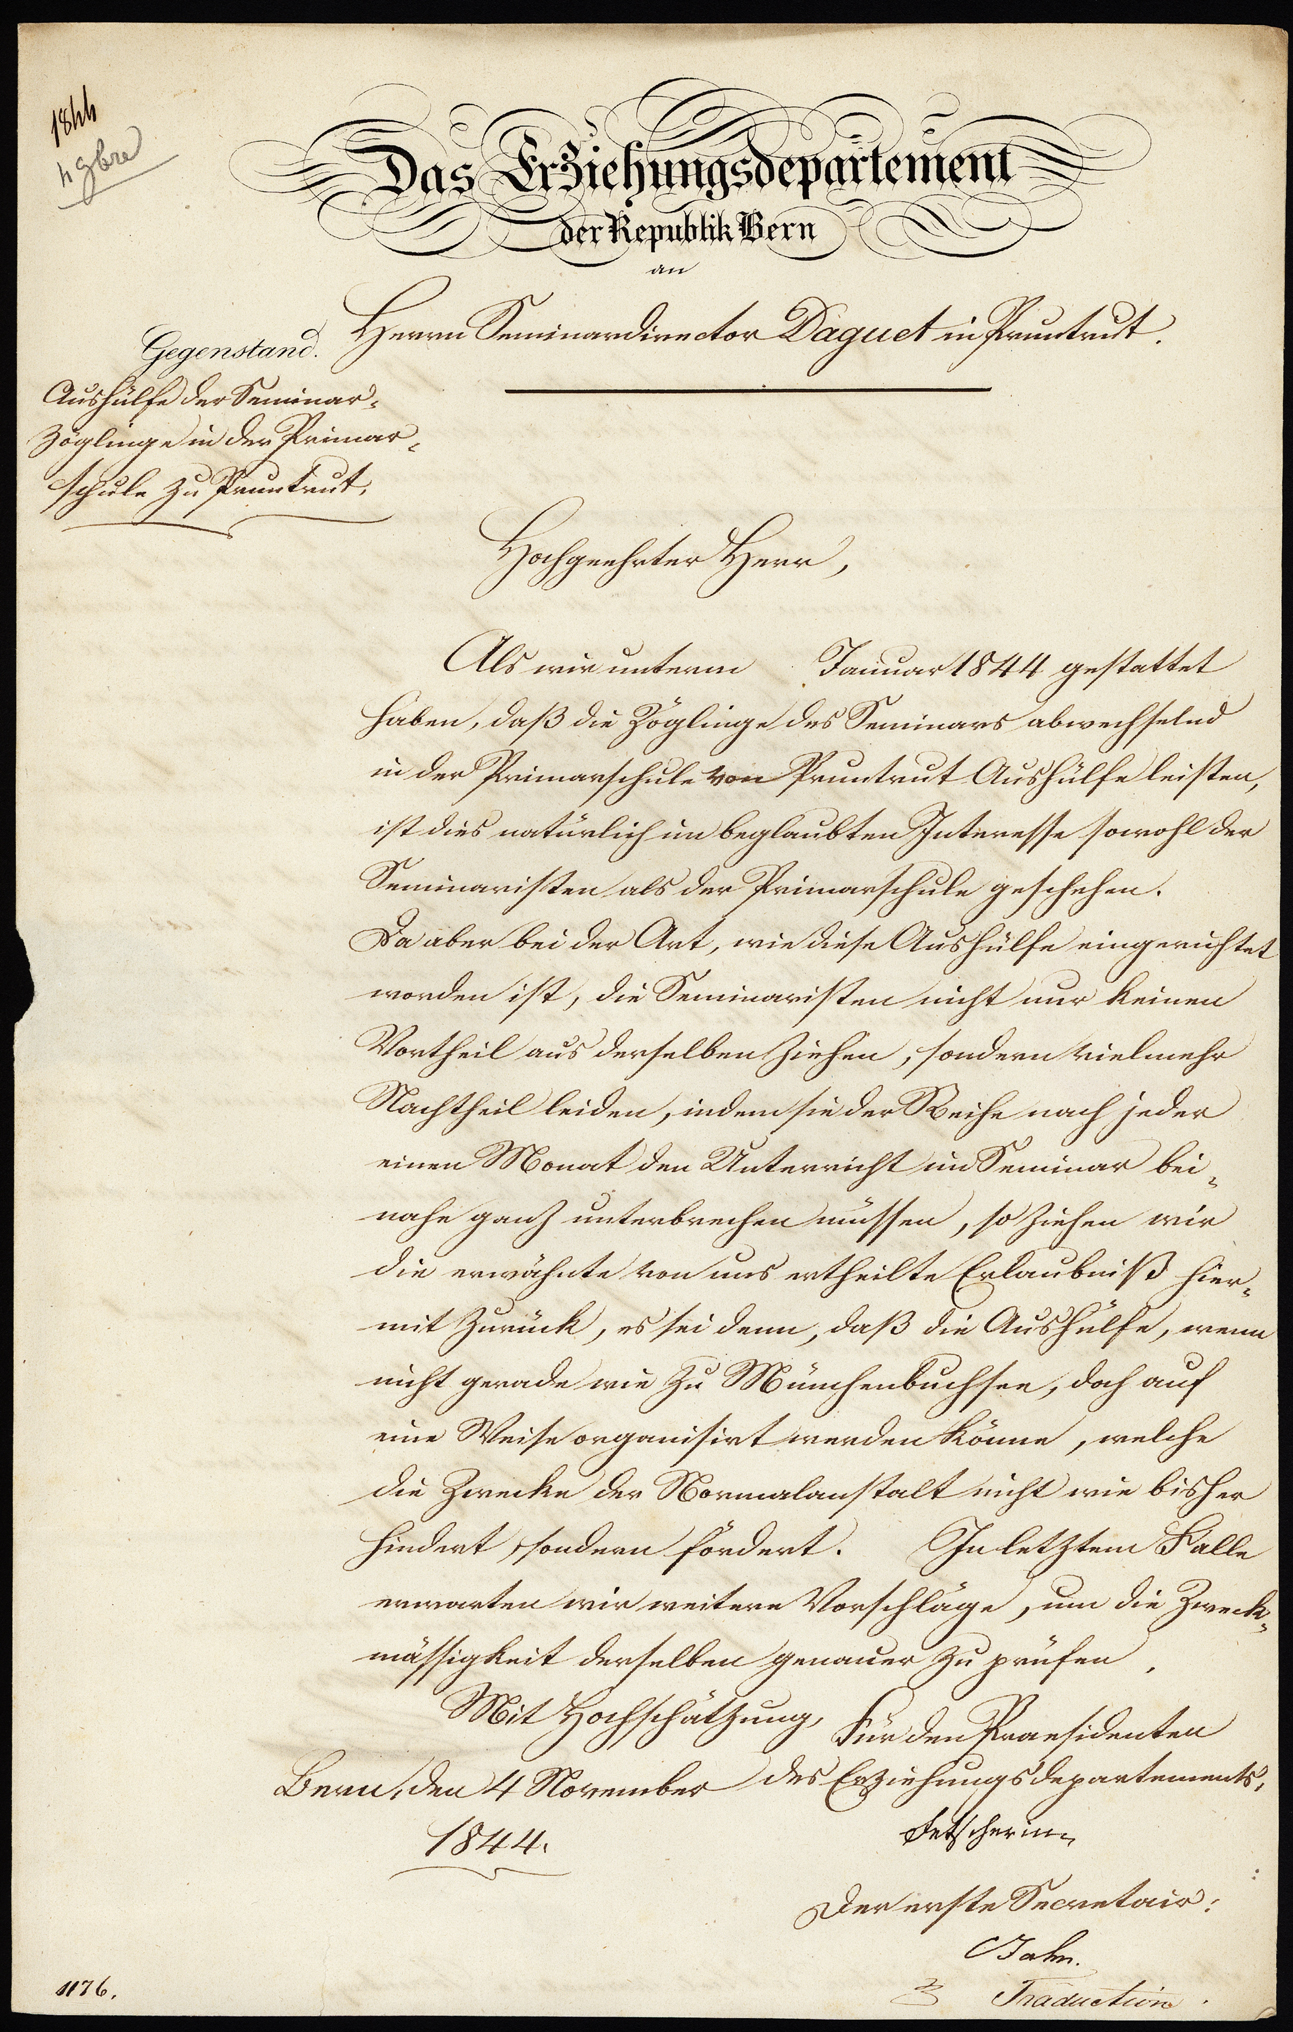 1844
4 9bre
Das Erziehungsdepartement
der Republik Bern
an
Herrn Seminardirector Daguet in Pruntrut.
Gegenstand.
Aushülfe der Seminar-
Zöglinge in der Primar-
schule zu Pruntrut.
Hochgeehrter Herr,
Als wir unterm Januar 1844 gestattet
haben, daß die Zöglinge des Seminars abwechselnd
in der Primarschule von Pruntrut Aushülfe leisten,
ist dies natürlich im beglaubten Interesse sowohl der
Seminaristen als der Primarschule geschehen.
Da aber bei der Art, wie diese Aushülfe eingerichtet
worden ist, die Seminaristen nicht nur keinen
Vortheil aus derselben ziehen, sondern vielmehr
Nachtheil leiden, indem sie der Reihe nach jeder
einen Monat den Unterricht im Seminar bei-
nahe ganz unterbrechen müssen, so ziehen wir
die erwähnte von uns ertheilte Erlaubniß hier-
mit zurück, es sei denn, daß die Aushülfe, wenn
nicht gerade wie zu Münchenbuchsee, doch auf
eine Weise organisirt werden könne, welche
die Zwecke der Normalanstalt nicht wie bisher
hindert, sondern fördert. In letztem Falle
erwarten wir weitere Vorschläge, um die Zweck-
mässigkeit derselben genauer zu prüfen.
Mit Hochschätzung,
Für den Praesidenten
des Erziehungsdepartements,
Bern, den 4 November
1844.
Fetscherin
Der erste Secretair:
Jahn.
Traduction.
1176.